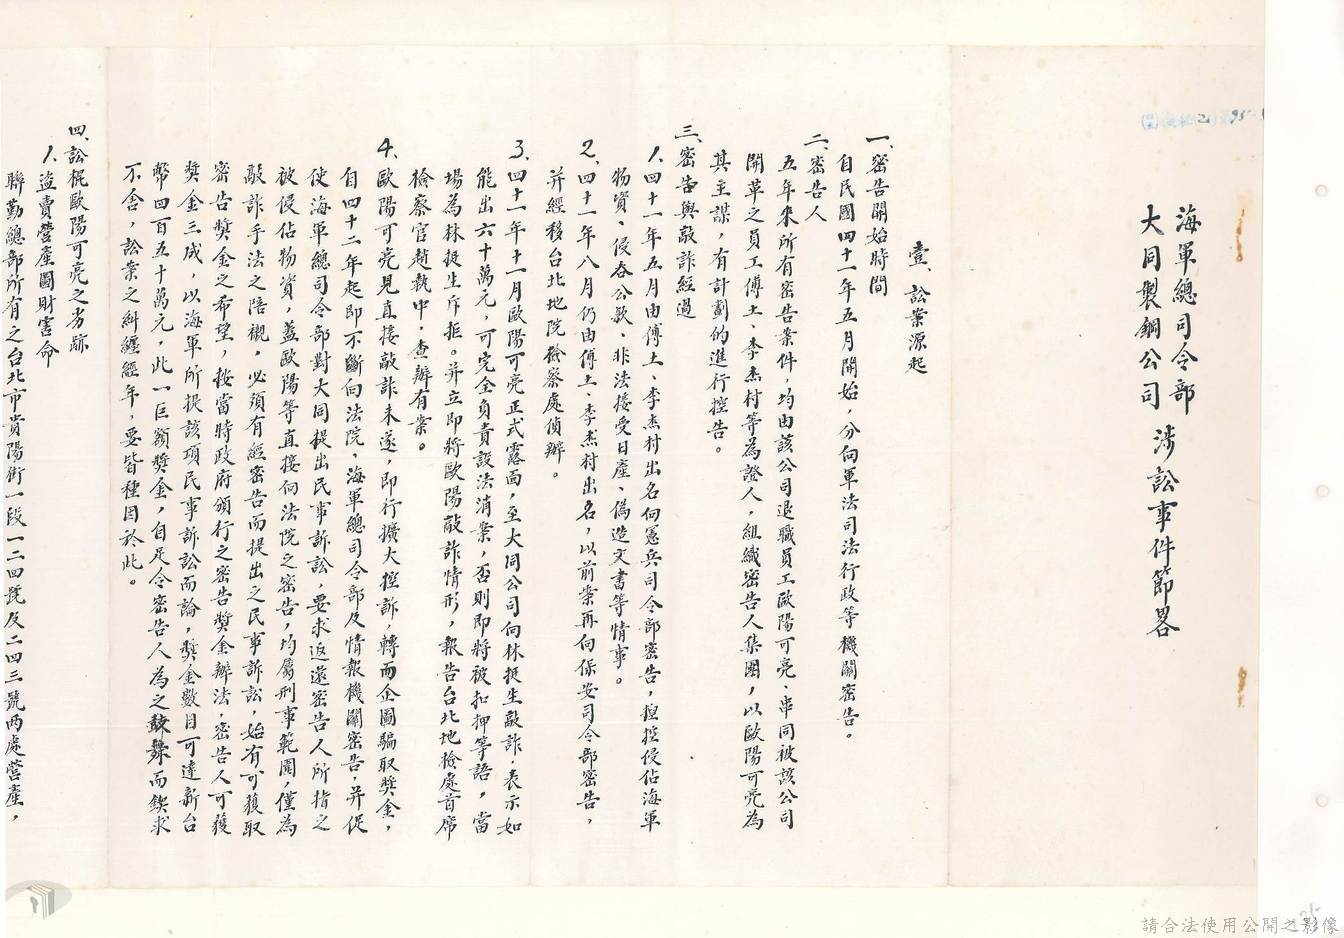 海軍總司令部
大同製鋼公司
涉訟事件節畧
壹、訟案源起
一、密告開始時間
自民國四十一年五月開始，分向軍法司法行政等機關密告。
二、密告人
五年來所有密告案件，均由該公司退職員工歐陽可亮、串同被該公司
開革之員工傅土、李杰村等為證人，組織密告人集團，以歐陽可亮為
其主謀，有計劃的進行控告。
三、密告與敲詐經過
1、四十一年五月由傅土、李杰村出名向憲兵司令部密告，捏控侵佔海軍
物資、侵吞公款、非法接受日產、偽造文書等情事。
2、四十一年八月仍由傅土、李杰村出名，以前案再向保安司令部密告，
并經移台北地院檢察處偵辦。
3、四十一年十一月歐陽可亮正式露面，至大同公司向林挺生敲詐，表示如
能出六十萬元，可完全負責設法消案，否則即將被扣押等語，當
場為林挺生斥拒。并立即將歐陽敲詐情形，報告台北地檢處首席
檢察官趙執中，查辦有案。
4、歐陽可亮見直接敲詐未遂，即行擴大控訴，轉而企圖騙取獎金，
自四十二年起即不斷向法院、海軍總司令部及情報機關密告，并促
使海軍總司令部對大同提出民事訴訟，要求返還密告人所指之
被侵佔物資，蓋歐陽等直接向法院之密告，均屬刑事範圍，僅為
敲詐手法之陪襯，必須有經密告而提出之民事訴訟，始有可獲取
密告獎金之希望，按當時政府頒行之密告獎金辦法，密告人可獲
獎金三成，以海軍所提該項民事訴訟而論，獎金數目可達新台
幣四百五十萬元，此一巨額獎金，自足令密告人為之鼓舞，而鍥求
不舍，訟案之糾纏經年，要皆種因於此。
四、訟棍歐陽可亮之劣跡
1、盜賣營產圖財害命
聯勤總部所有之台北市貴陽街一段一二四號及二四三號两處營產，
請合法使用公開之影像